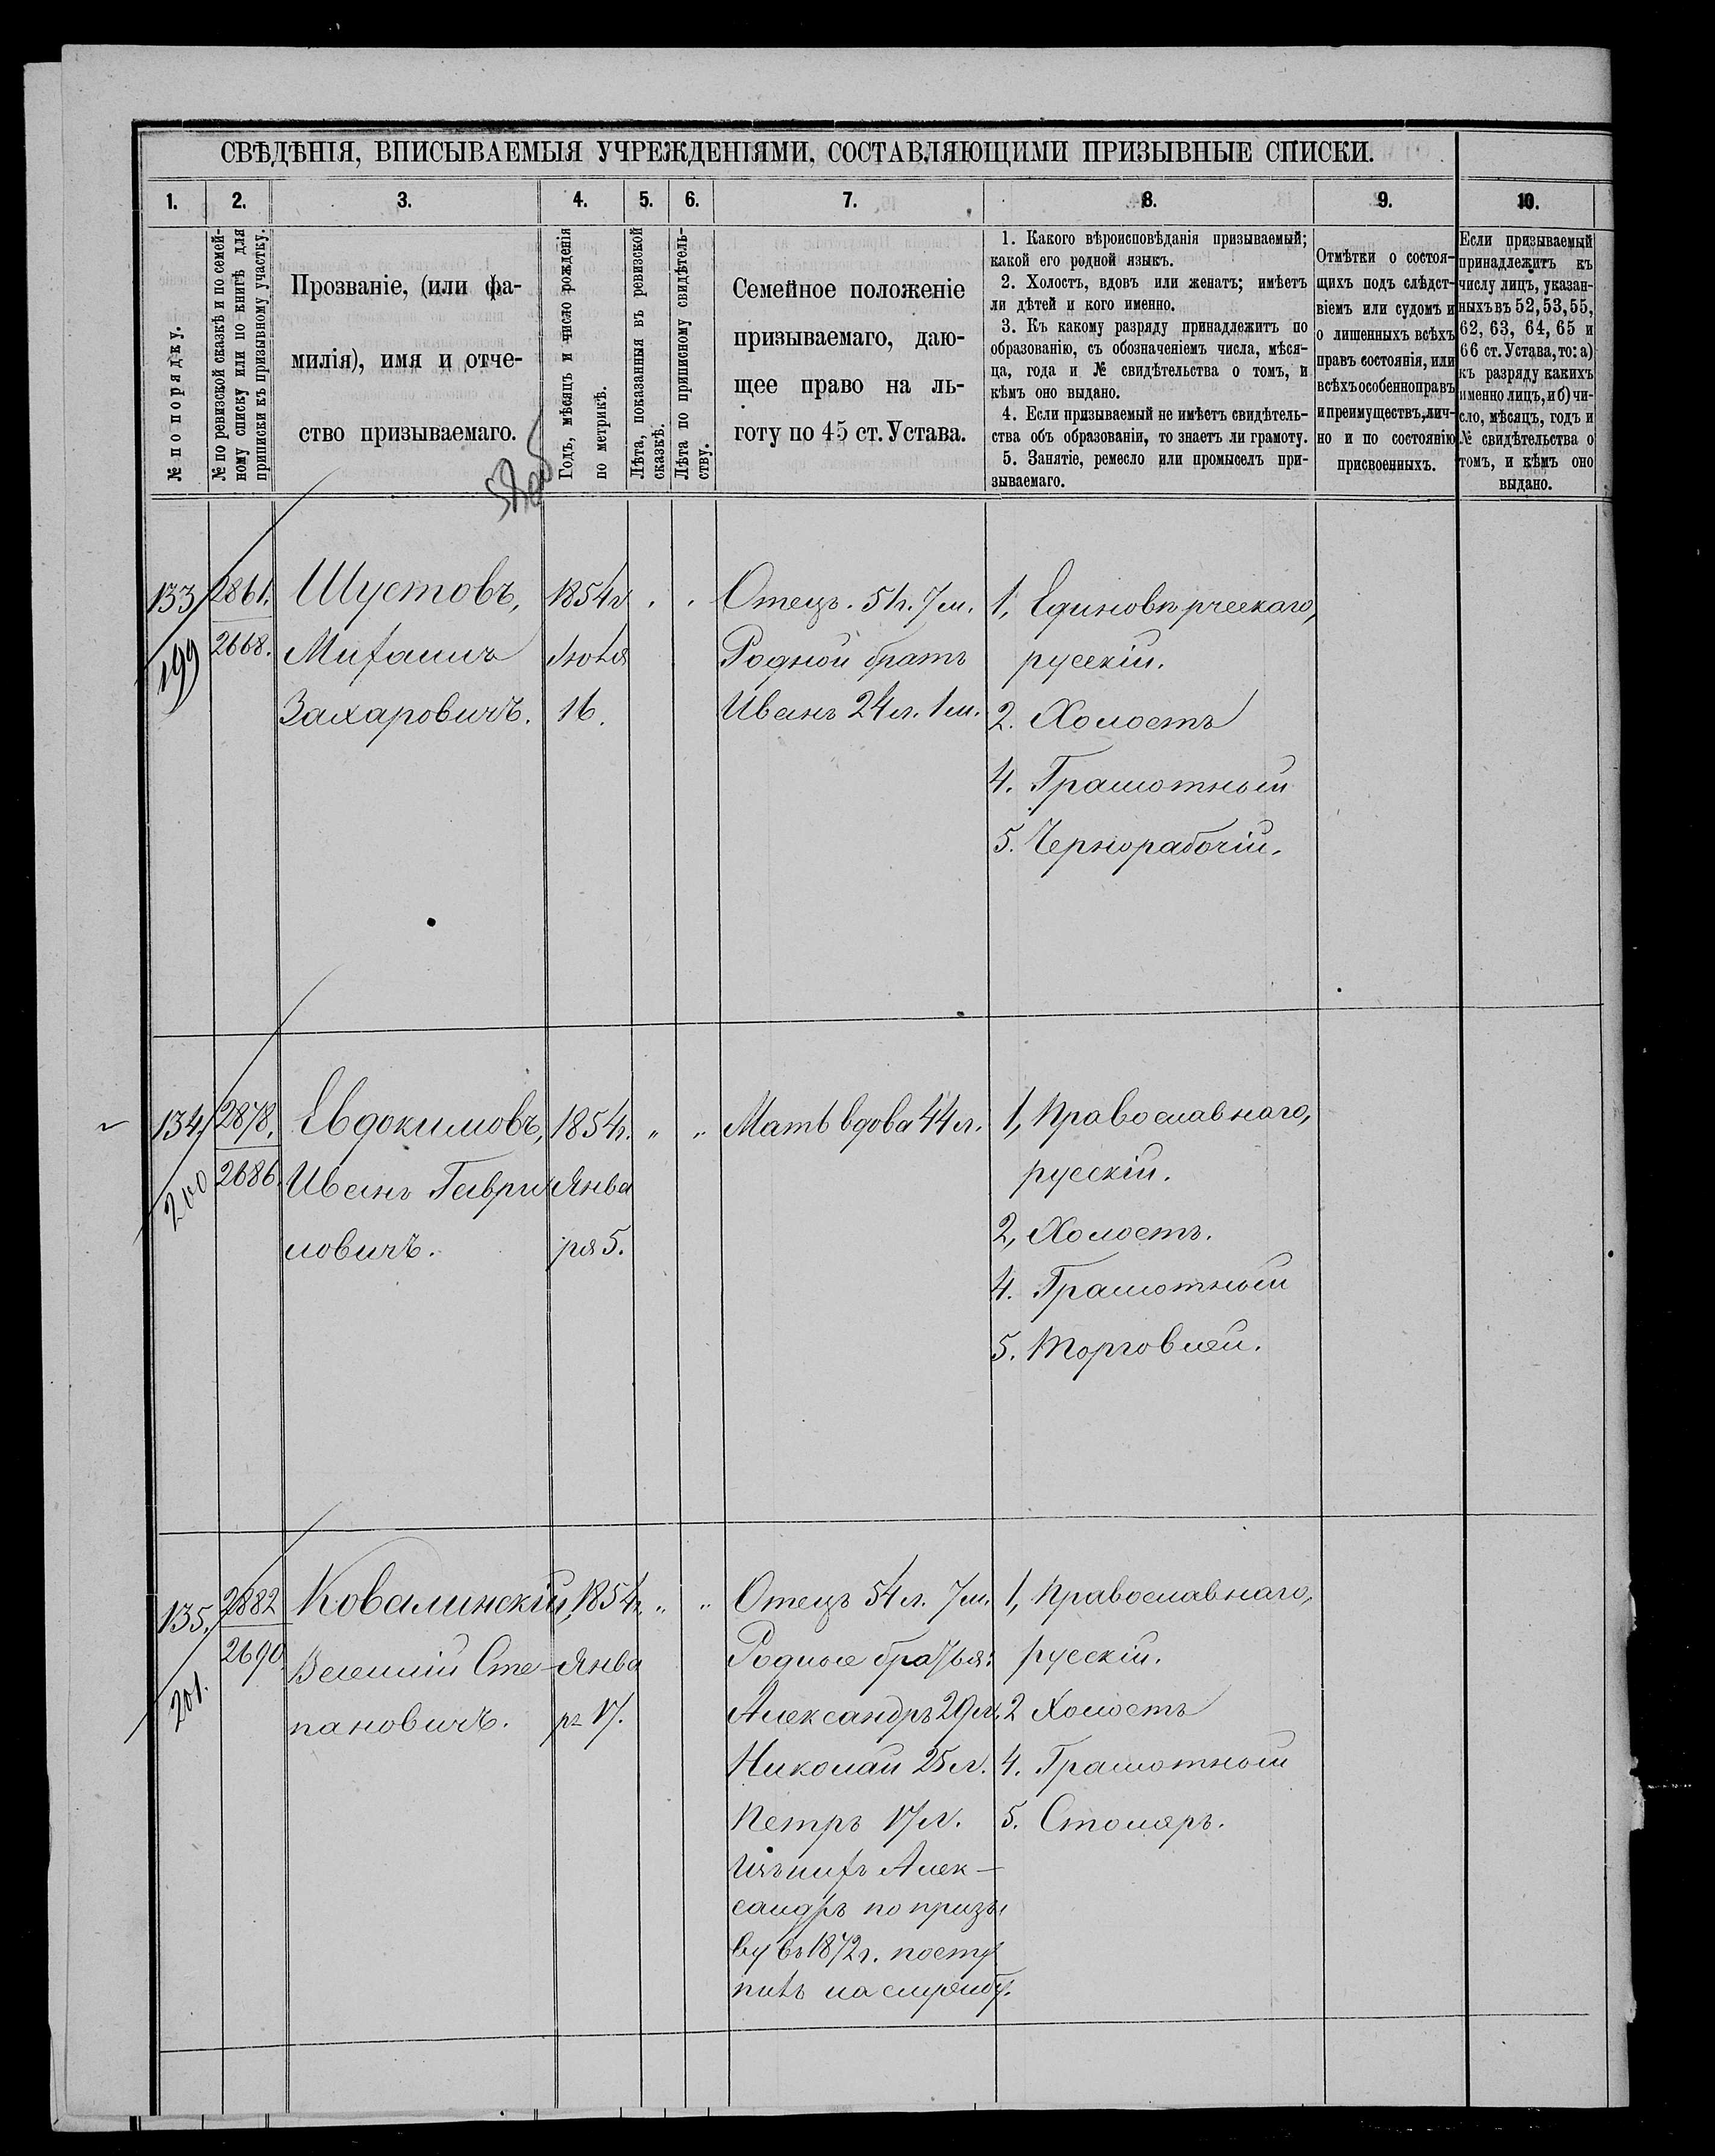 СВѢДѢНІЯ, ВПИСЫВАЕМЫЯ УЧРЕЖДЕНІЯМИ, СОСТАВЛЯЮЩИМИ ПРИЗЫВНЫЕ СПИСКИ.
1. 2. 3. 4. 5. 6. 7. 8. 9. 10.
№ по порядку.
№ по ревизской сказкѣ и по семей-
ному списку или по книгѣ для
приписки къ призывному участку.
Прозваніе, (или фа-
милія), имя и отче-
ство призываемаго.
Годъ, мѣсяцъ и число рожденія
по метрикѣ.
Лѣта, показанныя въ ревизской
сказкѣ.
Лѣта по приписному свидѣтель-
ству.
Семейное положеніе
призываемаго, даю-
щее право на ль-
готу по 45 ст. Устава.
1. Какого вѣроисповѣданія призываемый;
какой его родной языкъ.
2. Холостъ, вдовъ или женатъ; имѣетъ
ли дѣтей и кого именно.
3. Къ какому разряду принадлежитъ по
образованію, съ обозначеніемъ числа, мѣся-
ца, года и № свидѣтельства о томъ, и
кѣмъ оно выдано.
4. Если призываемый не имѣетъ свидѣтель-
ства объ образованіи, то знаетъ ли грамоту.
5. Занятіе, ремесло или промыселъ при-
зываемаго.
Отмѣтки о состоя-
щихъ подъ слѣдст-
віемъ или судомъ и
о лишенныхъ всѣхъ
правъ состоянія, или
всѣхъ особенно правъ
и преимуществъ, лич-
но и по состоянію
присвоенныхъ.
Если призываемый
принадлежитъ къ
числу лицъ, указан-
ныхъ въ 52, 53, 55,
62, 63, 64, 65 и
66 ст. Устава, то: а)
къ разряду какихъ
именно лицъ, и б) чи-
сло, мѣсяцъ, годъ и
№ свидѣтельства о
томъ, и кѣмъ оно
выдано.
133
199
2861.
2668.
Шустовъ,
Михаилъ
Захаровичъ.
1854 г
Іюля
16.
Отецъ. 51г. 7 м.
Родной братъ
Иванъ 24 л. 1 м.
1, Единовѣрческаго,
русскій.
2. Холостъ
4. Грамотный
5. Чернорабочій.
134.
200
2878.
2686.
Евдокимовъ,
Иванъ Гаври
ловичъ.
1854 г.
Янва
ря 5.
Мать вдова 44 л.
1, Православнаго,
русскій.
2, Холостъ.
4. Грамотный
5. Торговлей.
135.
201.
2882
2690
Ковалинскій,
Василій Сте-
пановичъ.
1854 г.
Янва
ря 17.
Отецъ 54 л. 7 м.
Родные братья:
Александръ 29 л.
Николай 25 л.
Петръ 17 л.
Изъ нихъ Алек-
сандръ по призы
ву въ 1872 г. посту
пилъ на службу.
1, Православнаго,
русскій.
2 Холостъ
4. Грамотный
5. Столяръ.